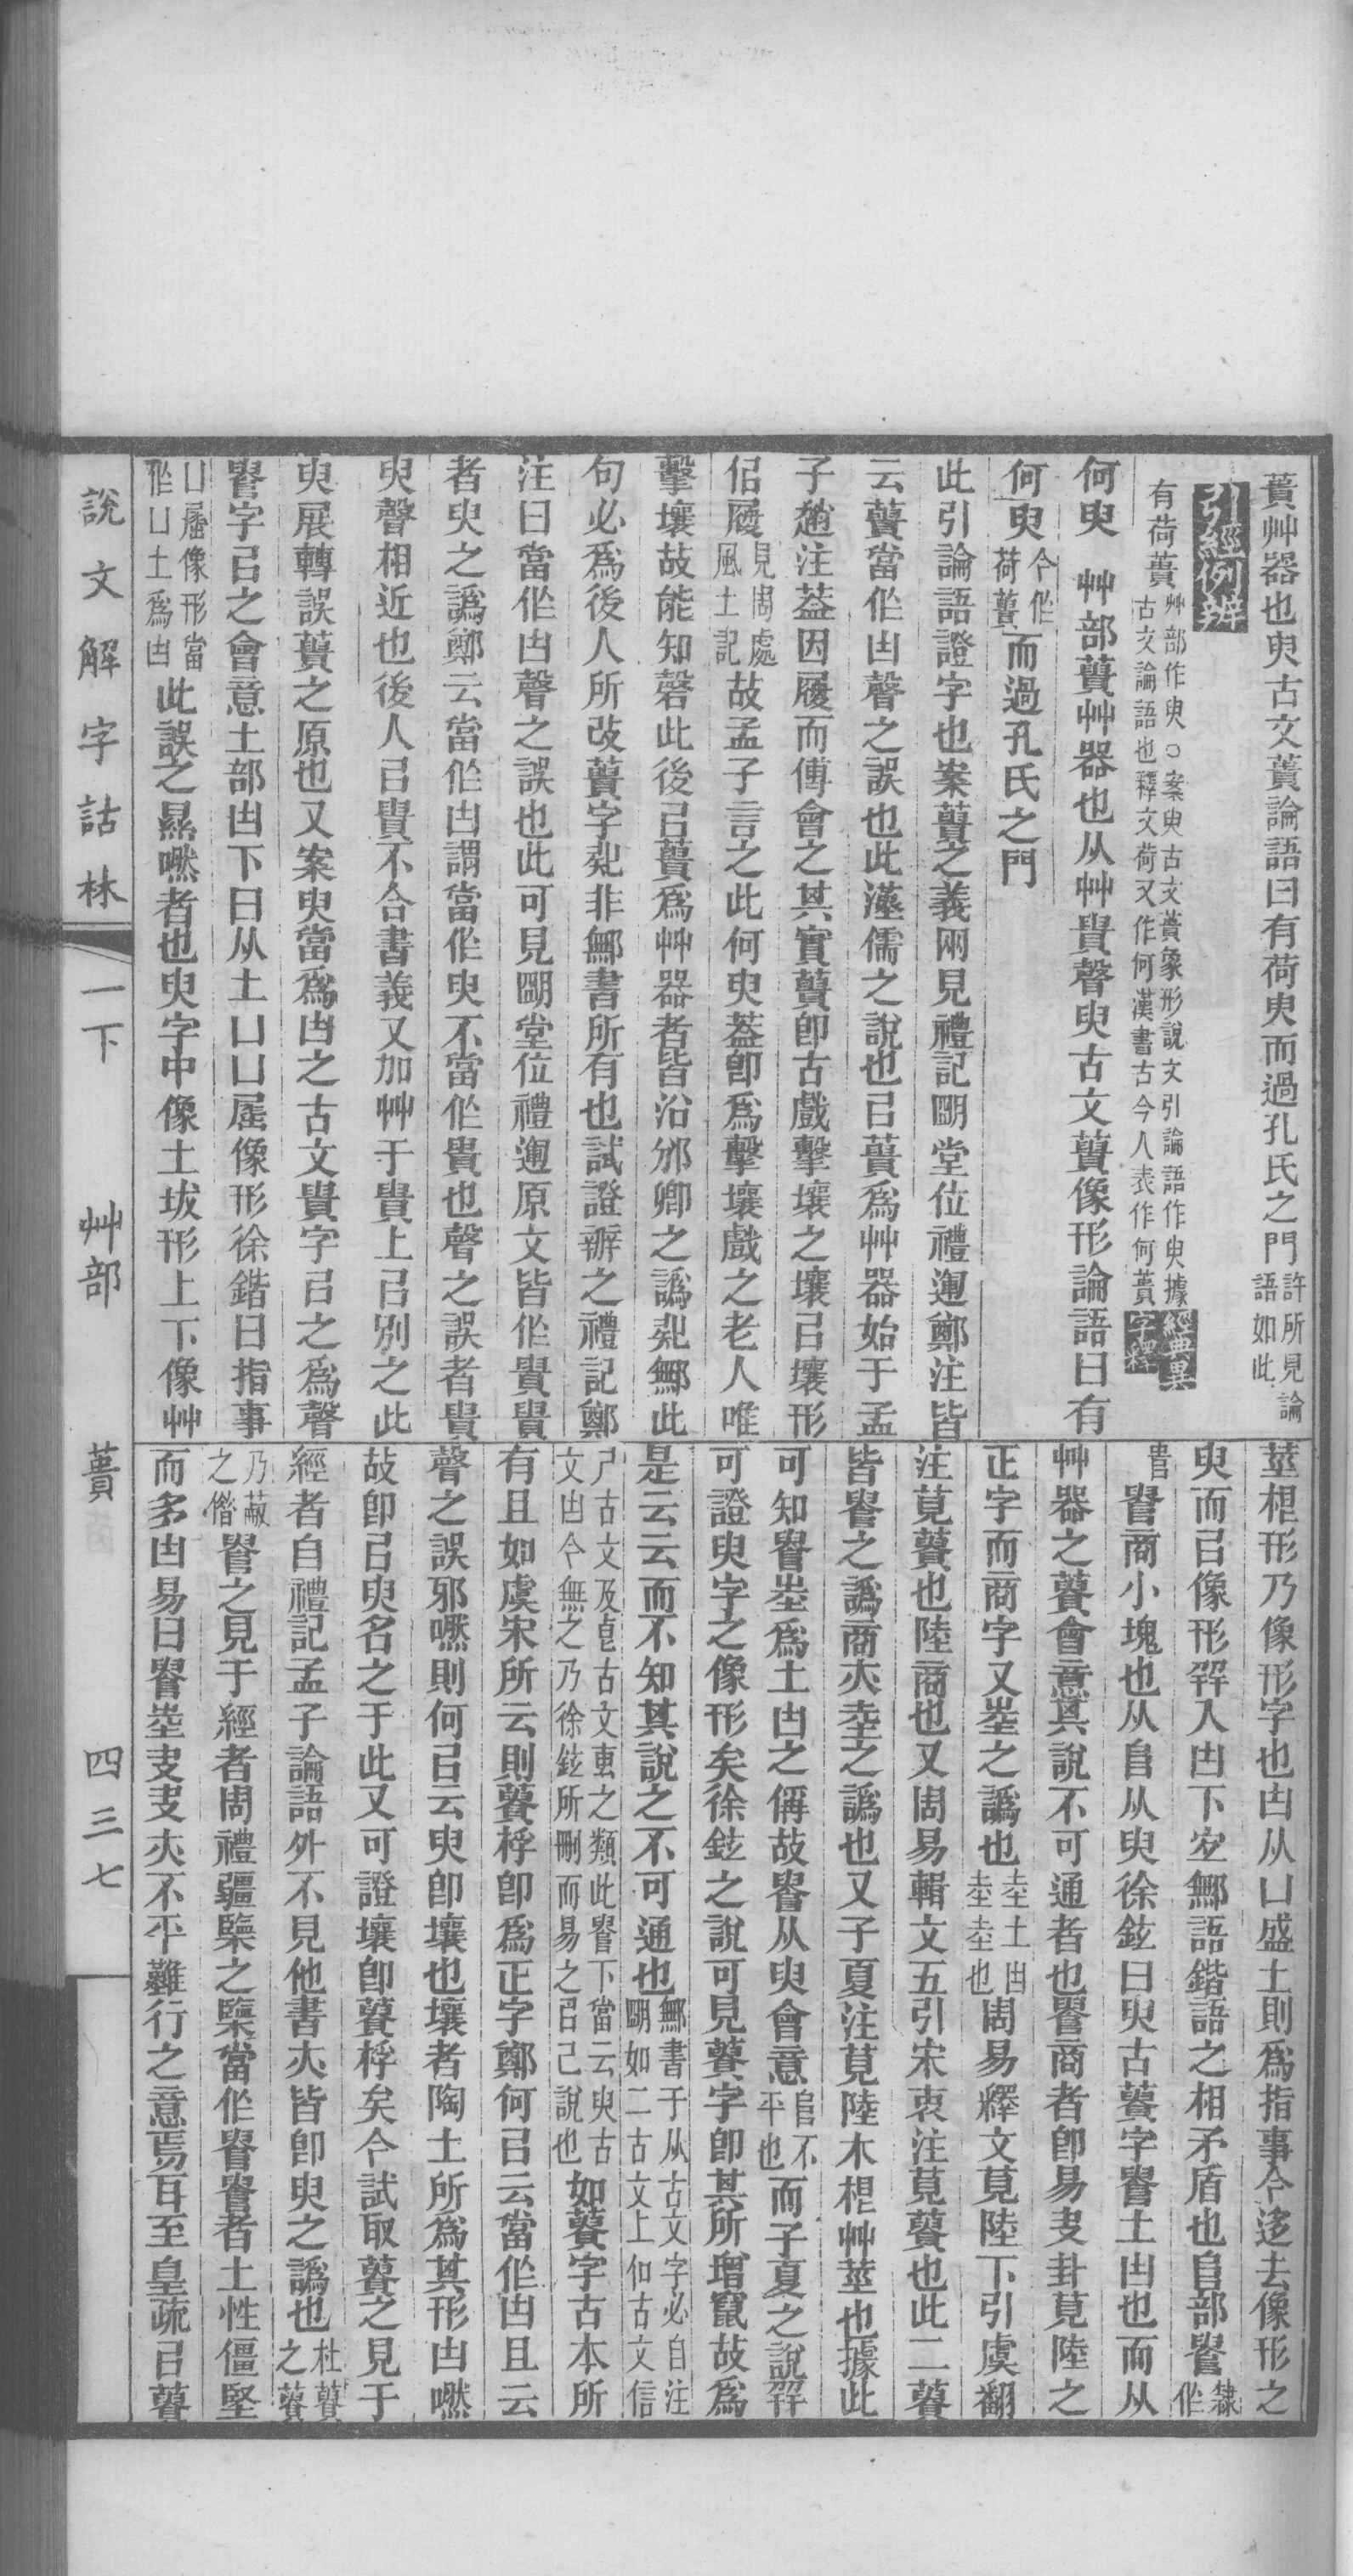 蕢艸器也臾古文蕢論語曰有荷臾而過孔氏之門許所見論語如此
引經例辨
有荷蕢艸部作臾○案臾古文蕢象形說文引論語作臾據古文論語也釋文荷又作何漢書古今人表作何蕢經典異字釋
何臾 艸部蕢艸器也从艸貴聲臾古文蕢像形論語曰有
何臾今作荷蕢而過孔氏之門
此引論語證字也案蕢之義兩見禮記朙堂位禮運鄭注皆
云蕢當作凷聲之誤也此漢儒之說也㠯蕢爲艸器始于孟
子趙注葢因屨而傅會之其實蕢卽古戲擊壤之壤㠯壤形
侣屨見周處風土記故孟子言之此何臾葢卽爲擊壤戲之老人唯
擊壤故能知磬此後㠯蕢爲艸器者皆沿邠卿之譌𣦼鄦此
句必爲後人所改蕢字𣦼非鄦書所有也試證辨之禮記鄭
注曰當作凷聲之誤也此可見朙堂位禮運原文皆作貴貴
者臾之譌鄭云當作凷謂當作臾不當作貴也聲之誤者貴
臾聲相近也後人㠯貴不合書義又加艸于貴上㠯别之此
臾展轉誤蕢之原也又案臾當爲凷之古文貴字㠯之爲聲
㽟字㠯之會意土部凷下曰从土凵凵屈像形徐鍇曰指事
凵屈像形當作凵土爲凷此誤之㬎嘫者也臾字中像土坺形上下像艸
莖梖形乃像形字也凷从凵盛土則爲指事今迻去像形之
臾而㠯像形羼入凷下㝎鄦語鍇語之相矛盾也𠂤部㽟隸作
𠳋㽟商小塊也从𠂤从臾徐鉉曰臾古蕢字㽟土凷也而从
艸器之蕢會意其說不可通者也㽟商者卽易夬卦莧陸之
正字而商字又坴之譌也坴土凷坴坴也周易釋文莧陸下引虞翻
注莧蕢也陸商也又周易輯文五引宋衷注莧蕢也此二蕢
皆㽟之譌商亦坴之譌也又子夏注莧陸木梖艸莖也據此
可知㽟坴爲土凷之偁故㽟从臾會意𠂤不平也而子夏之說羼
可證臾字之像形矣徐鉉之說可見蕢字卽其所增竄故爲
是云云而不知其說之不可通也鄦書于从古文字必自注朙如二古文上仰古文信
𠂆古文及皀古文叀之類此㽟下當云臾古文凷今無之乃徐鉉所刪而易之㠯己說也如蕢字古本所
有且如虞宋所云則蕢桴卽爲正字鄭何㠯云當作凷且云
聲之誤邪嘫則何㠯云臾卽壤也壤者陶土所爲其形凷嘫
故卽㠯臾名之于此又可證壤卽蕢桴矣今試取蕢之見于
經者自禮記孟子論語外不見他書亦皆卽臾之譌也杜蕢之蕢
乃蔽之僭㽟之見于經者周禮疆㯺之㯺當作㽟㽟者土性僵堅
而多凷易曰㽟坴夬夬亦不平難行之意焉耳至皇疏㠯蕢
說文解字詁林 一下 艸部 蕢 四三七